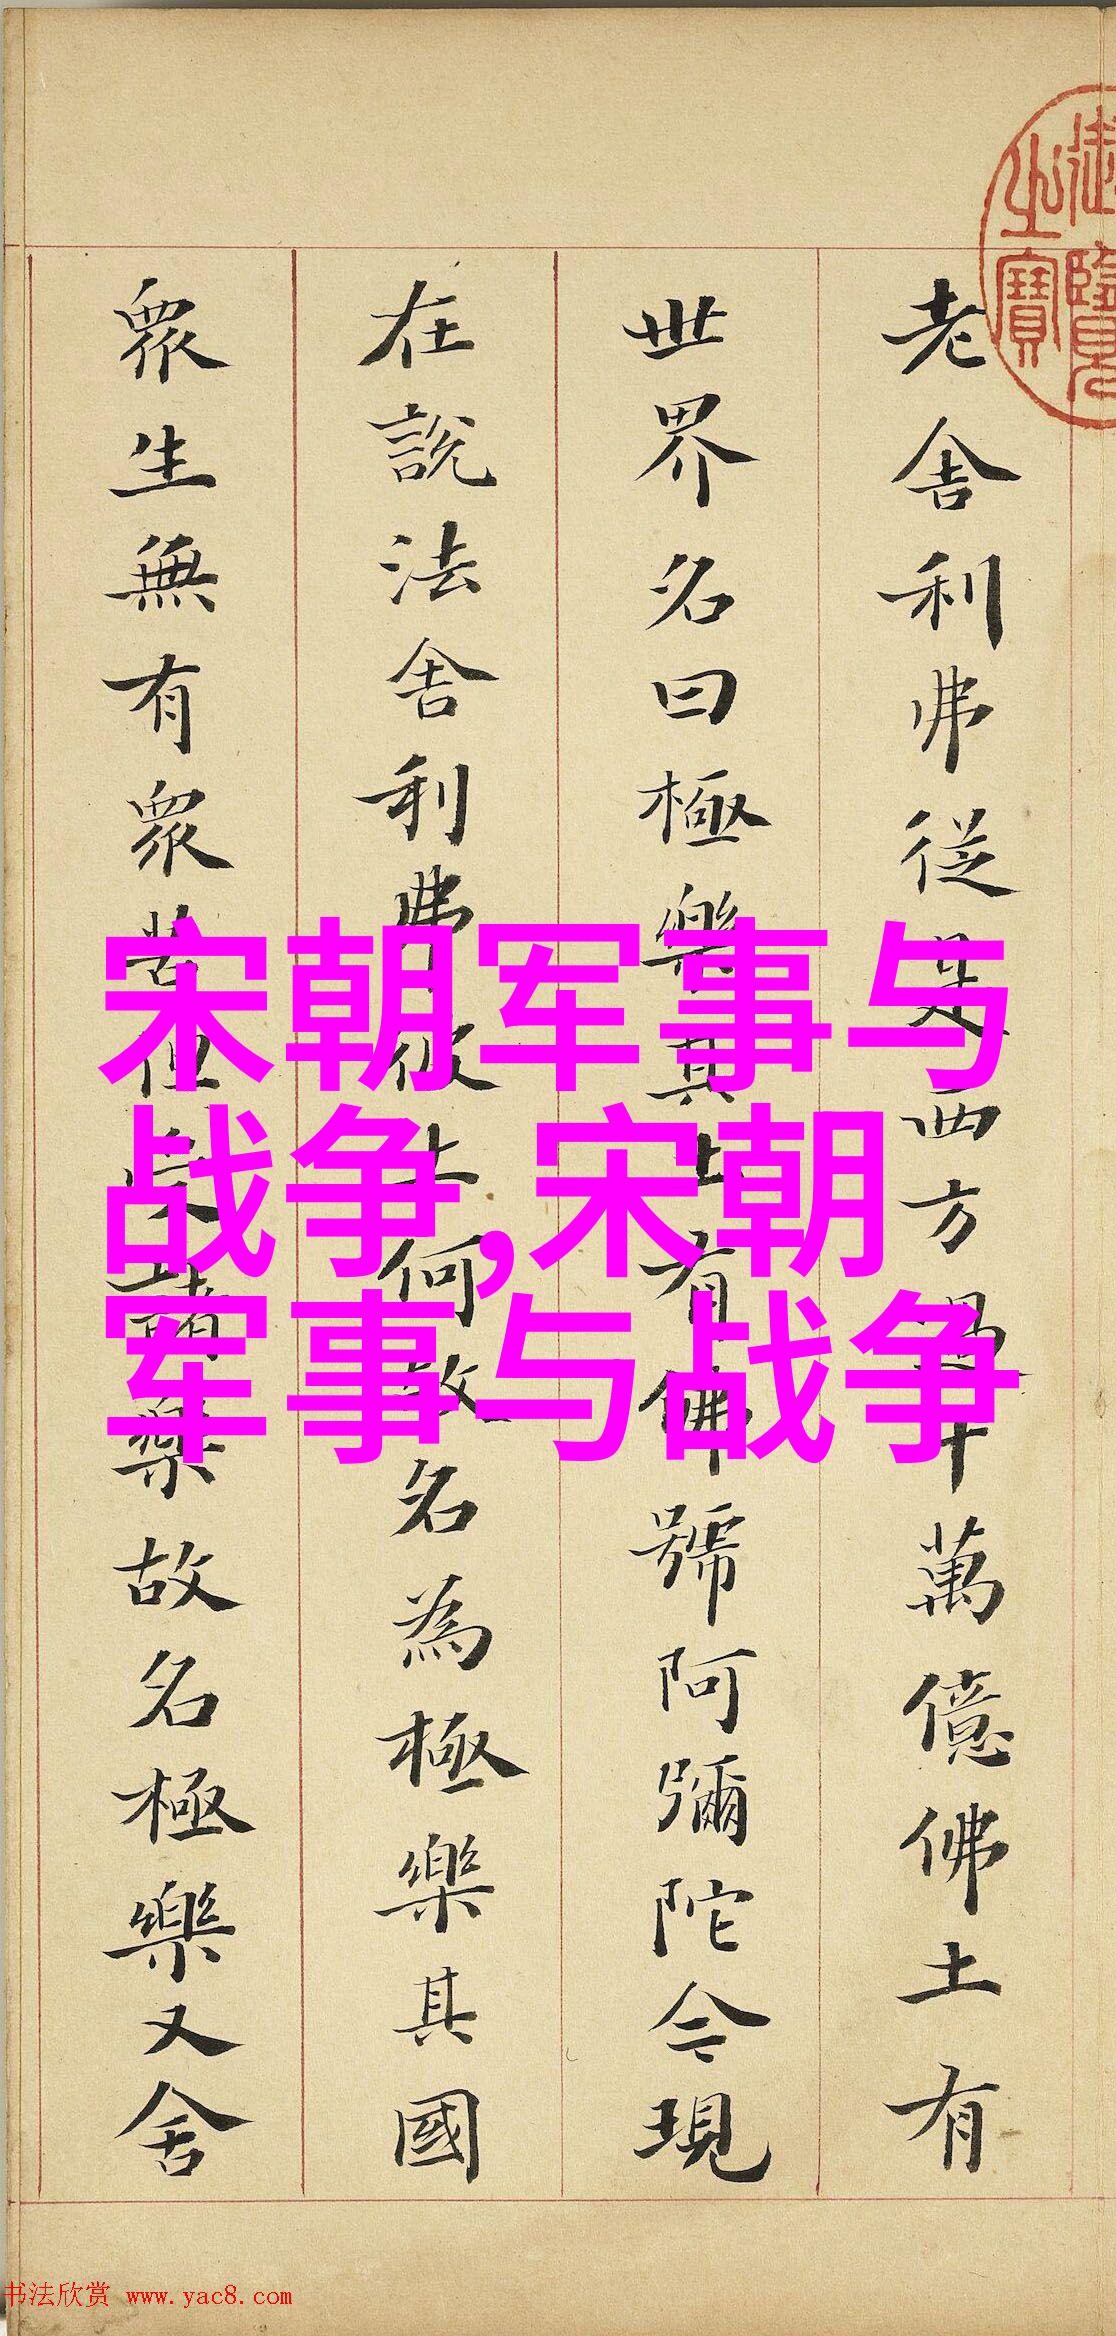 御覽
之寶
老舍利弗從是西方過十萬億佛土有
世界名曰極樂其土有佛號阿彌陀今現
在說法舍利弗彼土何故名為極樂其國
眾生無有眾苦但受諸樂故名極樂又舍
宋朝军事与
战争,宋朝
军事与战争
书法欣赏 www.yac8.com